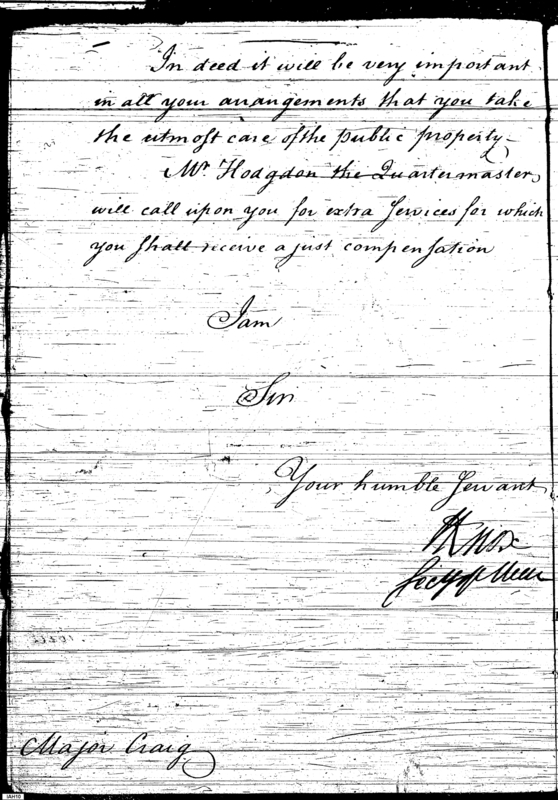 In deed it will be very important
in all your arrangements that you take
the utmost care of the public property—
Mr Hodgdon the Quartermaster,
will call upon you for extra services for which
you shall receive a just compensation
I am
Sir
Your humble servant
HKnox
Secy of War
Major Craig
IAH10